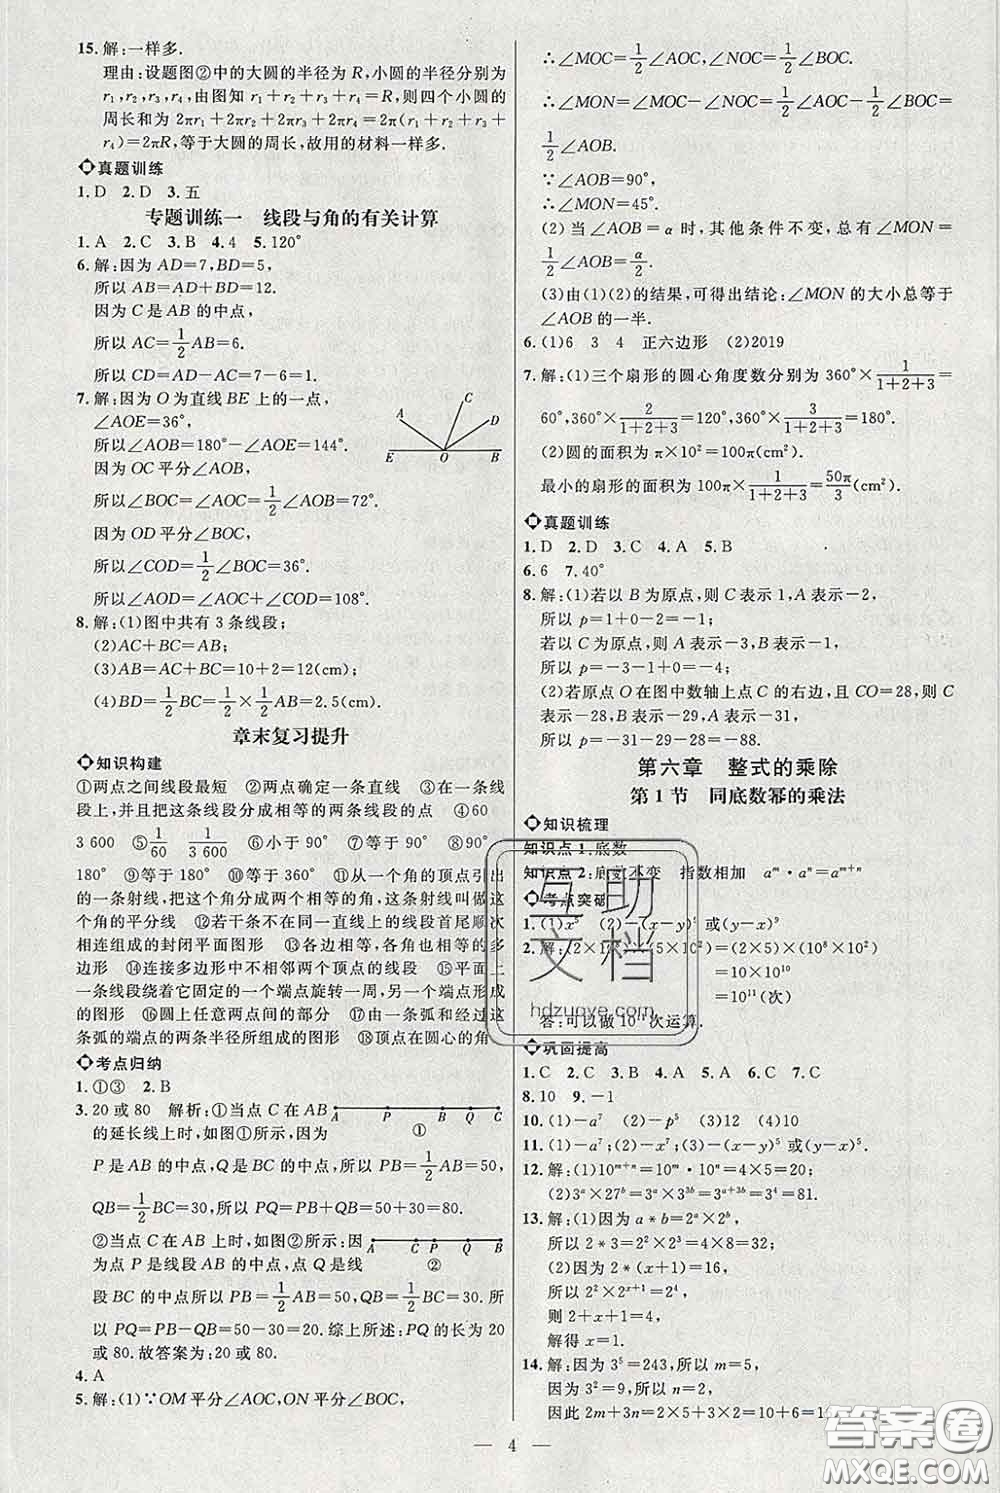 15.解:一样多.
理由:设题图②中的大圆的半径为 R,小圆的半径分别为
r₁,r₂,r₃,r₄,由图知 r₁+r₂+r₃+r₄=R,则四个小圆的
周长和为 2πr₁+2πr₂+2πr₃+2πr₄=2π(r₁+r₂+r₃+
r₄)=2πR,等于大圆的周长,故用的材料一样多.
真题训练
1.D 2.D 3.五
专题训练一 线段与角的有关计算
1.A 2.C 3.B 4.4 5.120°
6.解:因为 AD=7,BD=5,
所以 AB=AD+BD=12.
因为 C 是 AB 的中点,
所以 AC=1/2 AB=6.
所以 CD=AD-AC=7-6=1.
7.解:因为 O 为直线 BE 上的一点,
∠AOE=36°,
所以∠AOB=180°-∠AOE=144°.
因为 OC 平分∠AOB,
所以∠BOC=∠AOC=1/2∠AOB=72°.
因为 OD 平分∠BOC,
所以∠COD=1/2∠BOC=36°.
所以∠AOD=∠AOC+∠COD=108°.
A C D
E O B
8.解:(1)图中共有 3 条线段;
(2)AC+BC=AB;
(3)AB=AC+BC=10+2=12(cm);
(4)BD=1/2 BC=1/2×1/2 AB=2.5(cm).
章末复习提升
知识构建
①两点之间线段最短 ②两点确定一条直线 ③在线段
上,并且把这条线段分成相等的两条线段的点 ④60
3 600 ⑤1/60 1/3 600 ⑥小于 90° ⑦等于 90° ⑧大于 90°小于
180° ⑨等于 180° ⑩等于 360° ⑪从一个角的顶点引出
的一条射线,把这个角分成两个相等的角,这条射线叫做
这个角的平分线 ⑫若干条不在同一直线上的线段首尾顺次
相连组成的封闭平面图形 ⑬各边相等,各角也相等的多
边形 ⑭连接多边形中不相邻两个顶点的线段 ⑮平面上一
条线段绕着它固定的一个端点旋转一周,另一端点形成
的图形 ⑯圆上任意两点间的部分 ⑰由一条弧和经过这
条弧的端点的两条半径所组成的图形 ⑱顶点在圆心的角
考点归纳
1.①③ 2.B
3.20 或 80 解析:①当点 C 在 AB
的延长线上时,如图①所示,因为
A P B Q C
①
P 是 AB 的中点,Q 是 BC 的中点,所以 PB=1/2 AB=50,
QB=1/2 BC=30,所以 PQ=PB+QB=50+30=80.
②当点 C 在 AB 上时,如图②所示:因
为点 P 是线段 AB 的中点,点 Q 是线
A C P Q B
②
段 BC 的中点所以 PB=1/2 AB=50,QB=1/2 BC=30.所
以 PQ=PB-QB=50-30=20.综上所述:PQ 的长为 20
或 80.故答案为:20 或 80.
4.A
5.解:(1)∵OM 平分∠AOC,ON 平分∠BOC,
∴∠MOC=1/2∠AOC,∠NOC=1/2∠BOC.
∴∠MON=∠MOC-∠NOC=1/2∠AOC-1/2∠BOC=
1/2∠AOB.
∵∠AOB=90°,
∴∠MON=45°.
(2)当∠AOB=α 时,其他条件不变,总有∠MON=
1/2∠AOB=α/2.
(3)由(1)(2)的结果,可得出结论:∠MON 的大小总等于
∠AOB 的一半.
6.(1)6 3 4 正六边形 (2)2019
7.解:(1)三个扇形的圆心角度数分别为 360°×1/(1+2+3)=
60°,360°×2/(1+2+3)=120°,360°×3/(1+2+3)=180°.
(2)圆的面积为 π×10²=100π(cm²).
最小的扇形的面积为 100π×1/(1+2+3)=50π/3(cm²).
真题训练
1.D 2.D 3.C 4.A 5.B
6.6 7.40°
8.解:(1)若以 B 为原点,则 C 表示 1,A 表示-2,
所以 p=1+0-2=-1;
若以 C 为原点,则 A 表示-3,B 表示-1,
所以 p=-3-1+0=-4;
(2)若原点 O 在图中数轴上点 C 的右边,且 CO=28,则 C
表示-28,B 表示-29,A 表示-31,
所以 p=-31-29-28=-88.
第六章 整式的乘除
第 1 节 同底数幂的乘法
知识梳理
知识点 1:底数
知识点 2:底数不变 指数相加 aᵐ·aⁿ=aᵐ⁺ⁿ
考点突破
1.(1)x⁵ (2)-(x-y)⁵ 或(y-x)⁵
2.解:(2×10⁸)×(5×10²)=(2×5)×(10⁸×10²)
=10×10¹⁰
=10¹¹(次)
答:可以做 10¹¹次运算.
巩固提高
1.C 2.C 3.C 4.A 5.C 6.C 7.C
8.10 9.-1
10.(1)-a⁷ (2)-p⁵ (3)12 (4)10
11.(1)-a⁷;(2)-x⁷;(3)-(x-y)⁵ 或(y-x)⁵.
12.解:(1)10ᵐ⁺ⁿ=10ᵐ·10ⁿ=4×5=20;
(2)3ᵃ×27ᵇ=3ᵃ×3³ᵇ=3ᵃ⁺³ᵇ=3⁴=81.
13.解:(1)因为 a*b=2ᵃ×2ᵇ,
所以 2*3=2²×2³=4×8=32;
(2)因为 2*(x+1)=16,
所以 2²×2ˣ⁺¹=2⁴,
则 2+x+1=4,
解得 x=1.
14.解:因为 3⁵=243,所以 m=5,
因为 3²=9,所以 n=2,
因此 2m+3n=2×5+3×2=10+6=1
4
互助
文档
hdzuoye.com
答案圈
MXQE.COM